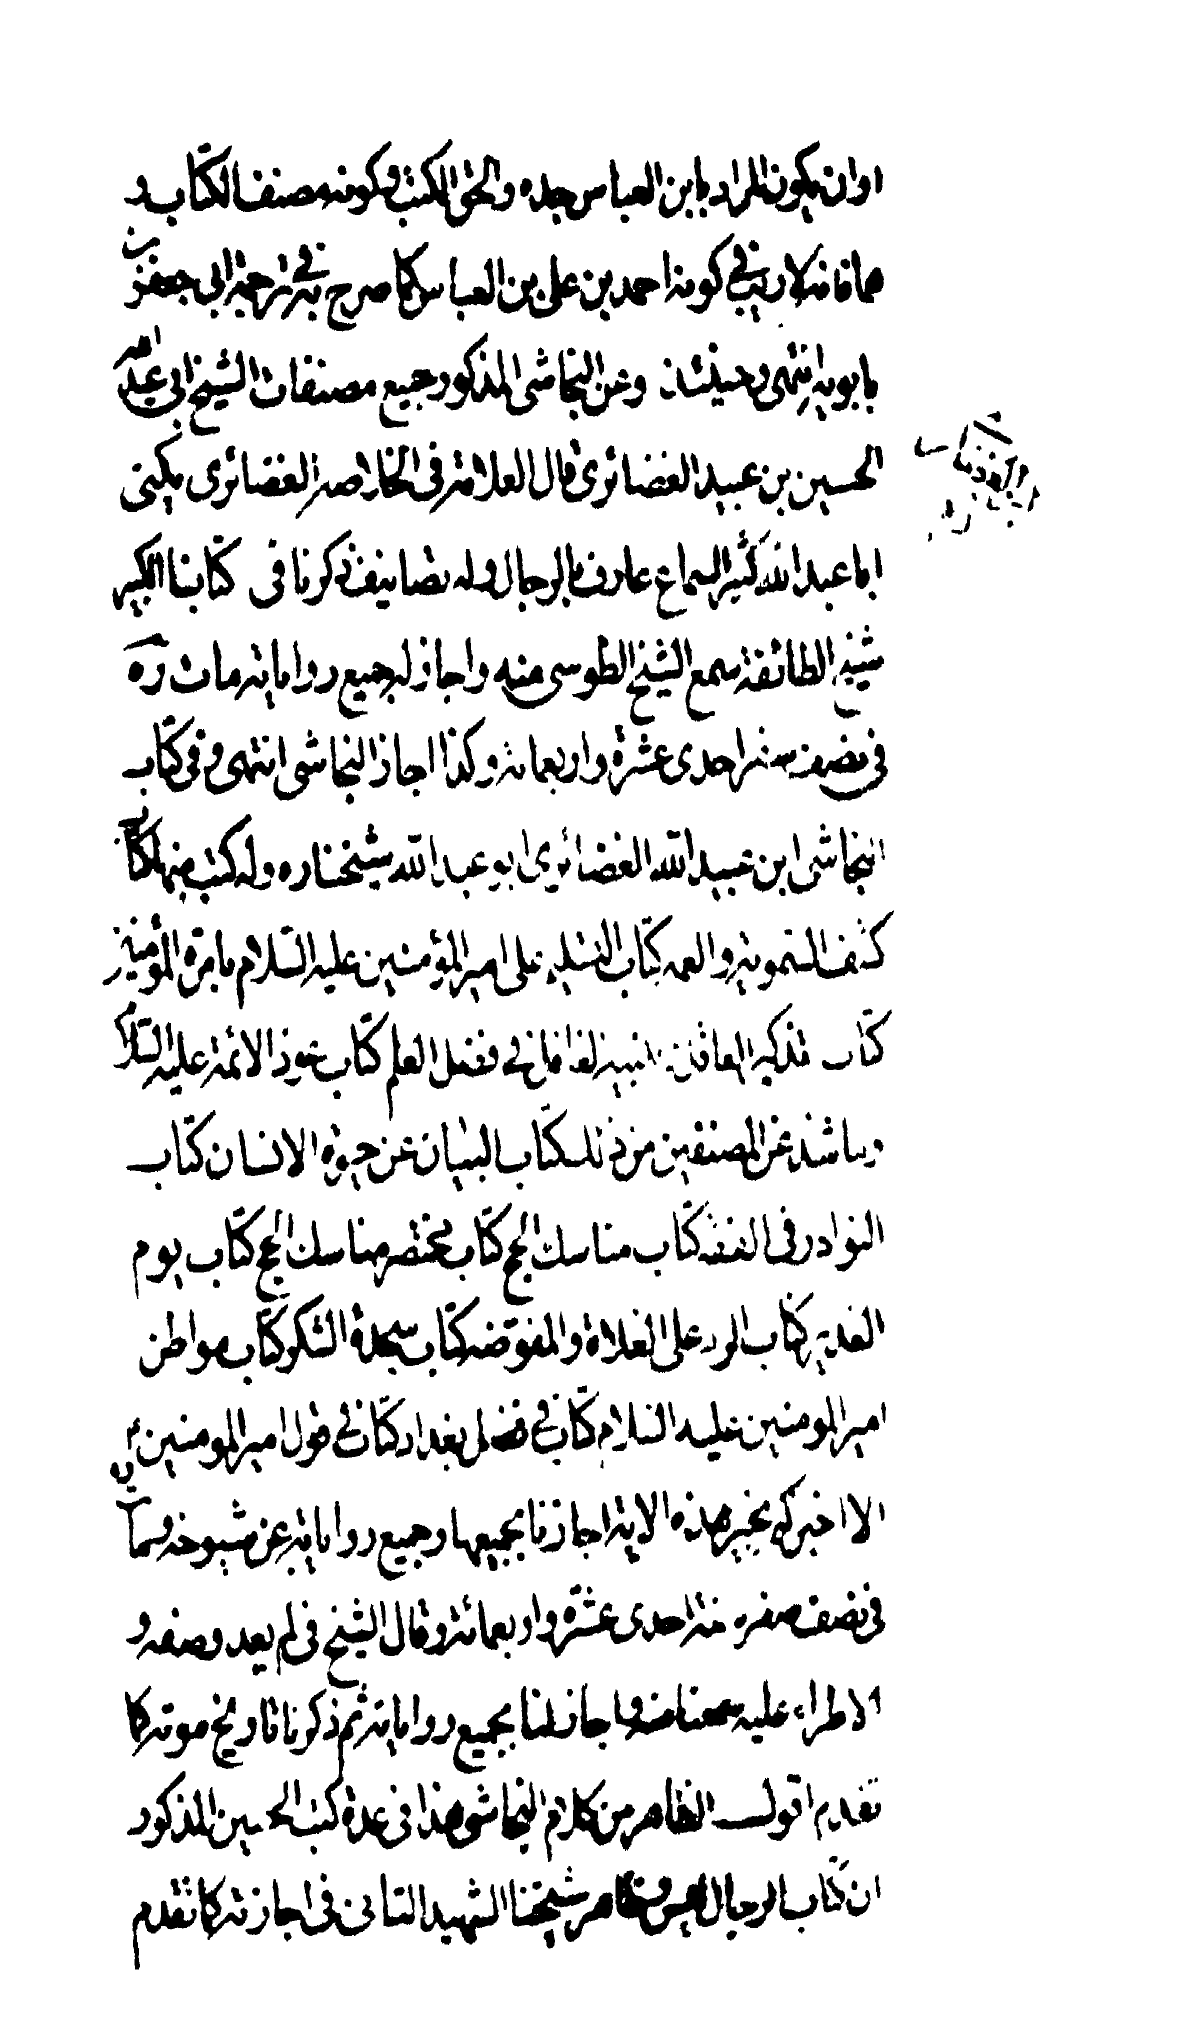 او ان يكون المراد بابن العباس جده والحق الكتب وكونه مصنف الكتاب و
هما فانه لا ريب في كونه احمد بن علي بن العباس كما صرح به في ترجمة ابي جعفر بن
بابويه انتهى وحينئذ وعن النجاشى المذكور جميع مصنفات الشيخ ابي عبد الله
الحسين بن عبيد الغضائرى قال العلامة فى الخلاصة الغضائرى يكنى
ابا عبد الله كثير السماع عارف بالرجال وله تصانيف ذكرنا فى كتابنا الكبير
شيخ الطائفة سمع الشيخ الطوسى منه واجاز له جميع رواياته مات ره
فى نصف سنة احدى عشرة واربعمائة وكذا اجاز النجاشى انتهى وفى كتاب
النجاشى ابن عبيد الله الغضائرى ابو عبد الله شيخنا ره وله كتب منها كتاب
كشف التمويه والغمه كتاب التسليم على امير المؤمنين عليه السلام بامرة المؤمنين
كتاب تذكير العاقل وتنبيه الغافل في فضل العلم كتاب عدد الائمة عليه السلام
وما شذ عن المصنفين من ذلك كتاب البيان عن حبوة الانسان كتاب
النوادر فى الفقه كتاب مناسك الحج كتاب مختصر مناسك الحج كتاب يوم
الغدير كتاب الرد على الغلاة والمفوضه كتاب سجدة الشكر كتاب مواطن
امير المومنين عليه السلام كتاب في فضل بغداد كتاب في قول امير المومنين
الا اخبركم بخير هذه الامة اجازنا بجميعها وجميع رواياته عن شيوخه ومات
فى نصف صفر سنة احدى عشرة واربعمائة وقال الشيخ فى لم بعد وصفه و
الاطراء عليه سمعنا منه واجاز لنا بجميع رواياته ثم ذكرنا تاريخ موته كما
تقدم اقول الظاهر من كلام النجاشى هذا فى عدة كتب الحسين المذكور
ان كتاب الرجال ليس وظاهر شيخنا الشهيد الثانى فى اجازته كما تقدم